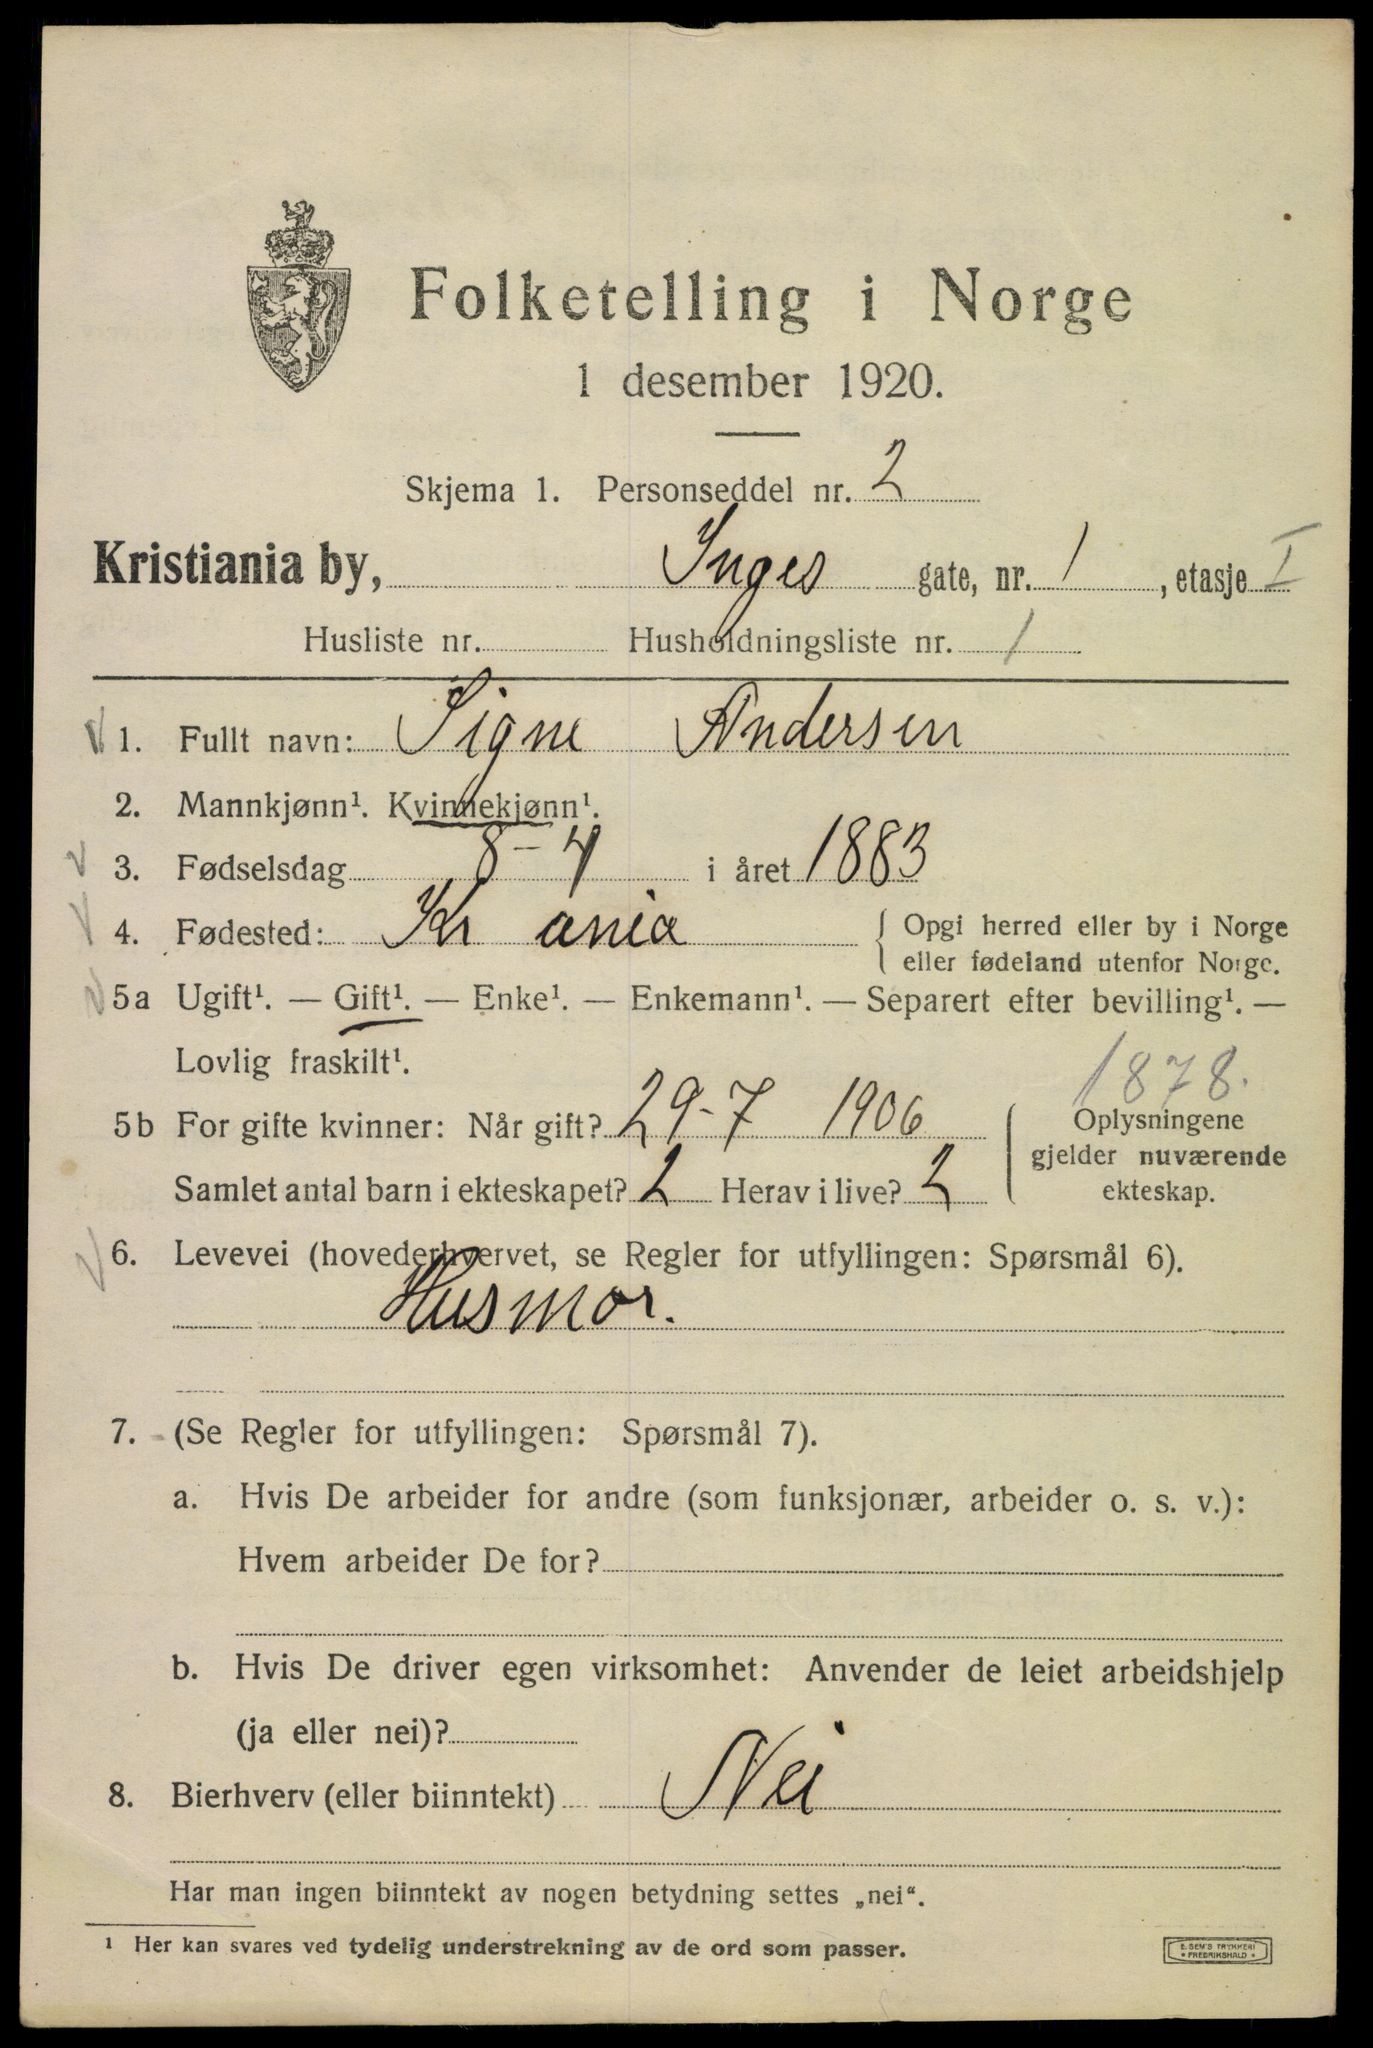 Folketelling i Norge
1 desember 1920.
Skjema 1. Personseddel nr. 2
Kristiania by, Inges gate, nr. 1, etasje I
Husliste nr. Husholdningsliste nr. 1
1. Fullt navn: Signe Andersen
2. Mannkjønn¹. Kvinnekjønn¹.
3. Fødselsdag 8-4 i året 1883
4. Fødested: Kr ania { Opgi herred eller by i Norge
eller fødeland utenfor Norge.
5a Ugift¹. — Gift¹. — Enke¹. — Enkemann¹. — Separert efter bevilling¹. —
Lovlig fraskilt¹.
1878.
5b For gifte kvinner: Når gift? 29-7 1906
Samlet antal barn i ekteskapet? 2 Herav i live? 2
Oplysningene
gjelder nuværende
ekteskap.
6. Levevei (hovederhvervet, se Regler for utfyllingen: Spørsmål 6).
Husmor.
7. (Se Regler for utfyllingen: Spørsmål 7).
a. Hvis De arbeider for andre (som funksjonær, arbeider o. s. v.):
Hvem arbeider De for?
b. Hvis De driver egen virksomhet: Anvender de leiet arbeidshjelp
(ja eller nei)?
8. Bierhverv (eller biinntekt) Nei
Har man ingen biinntekt av nogen betydning settes „nei“.
¹ Her kan svares ved tydelig understrekning av de ord som passer.
E. SEM'S TRYKKERI
* FREDRIKSHALD *